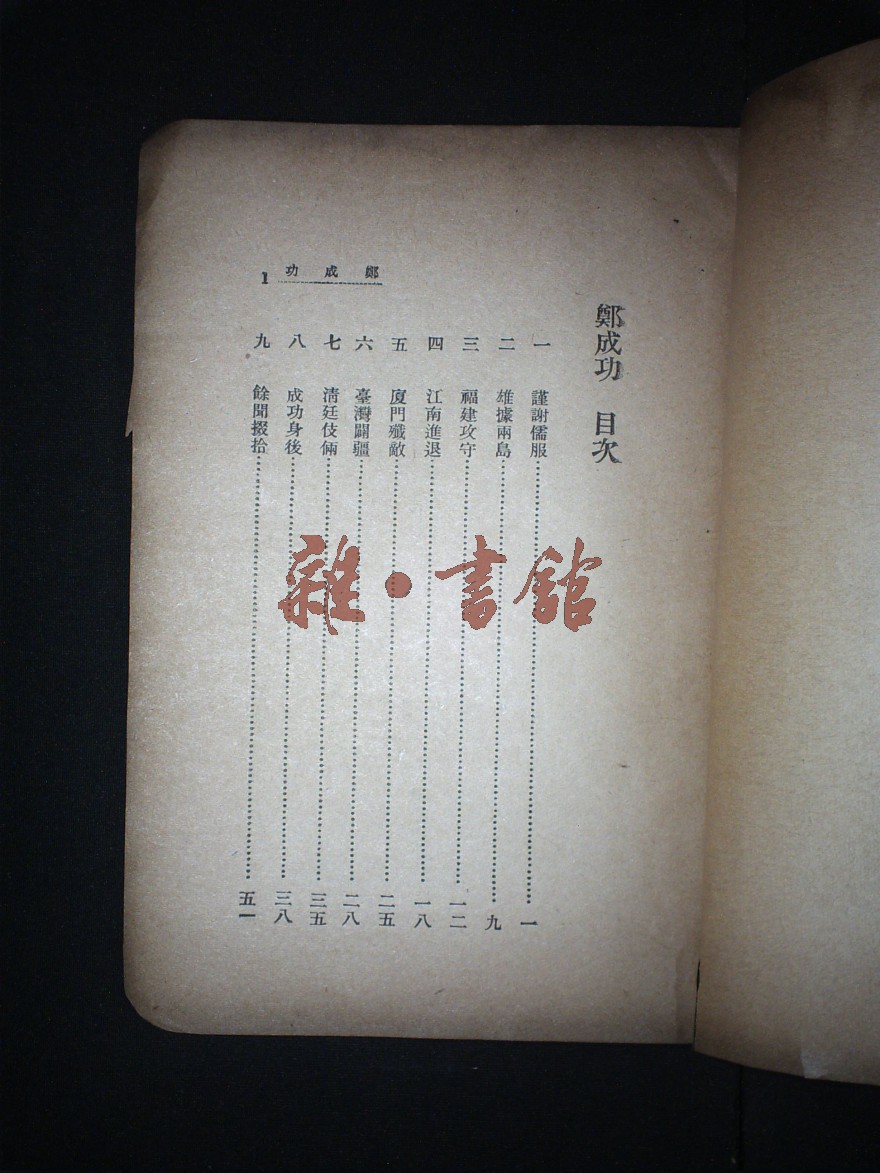 鄭成功
1
鄭成功 目次
一 謹謝儒服……一
二 雄據兩島……九
三 福建攻守……一二
四 江南進退……一八
五 廈門殲敵……二五
六 臺灣闢疆……二八
七 清廷伎倆……三五
八 成功身後……三八
九 餘聞掇拾……五一
雜·書館